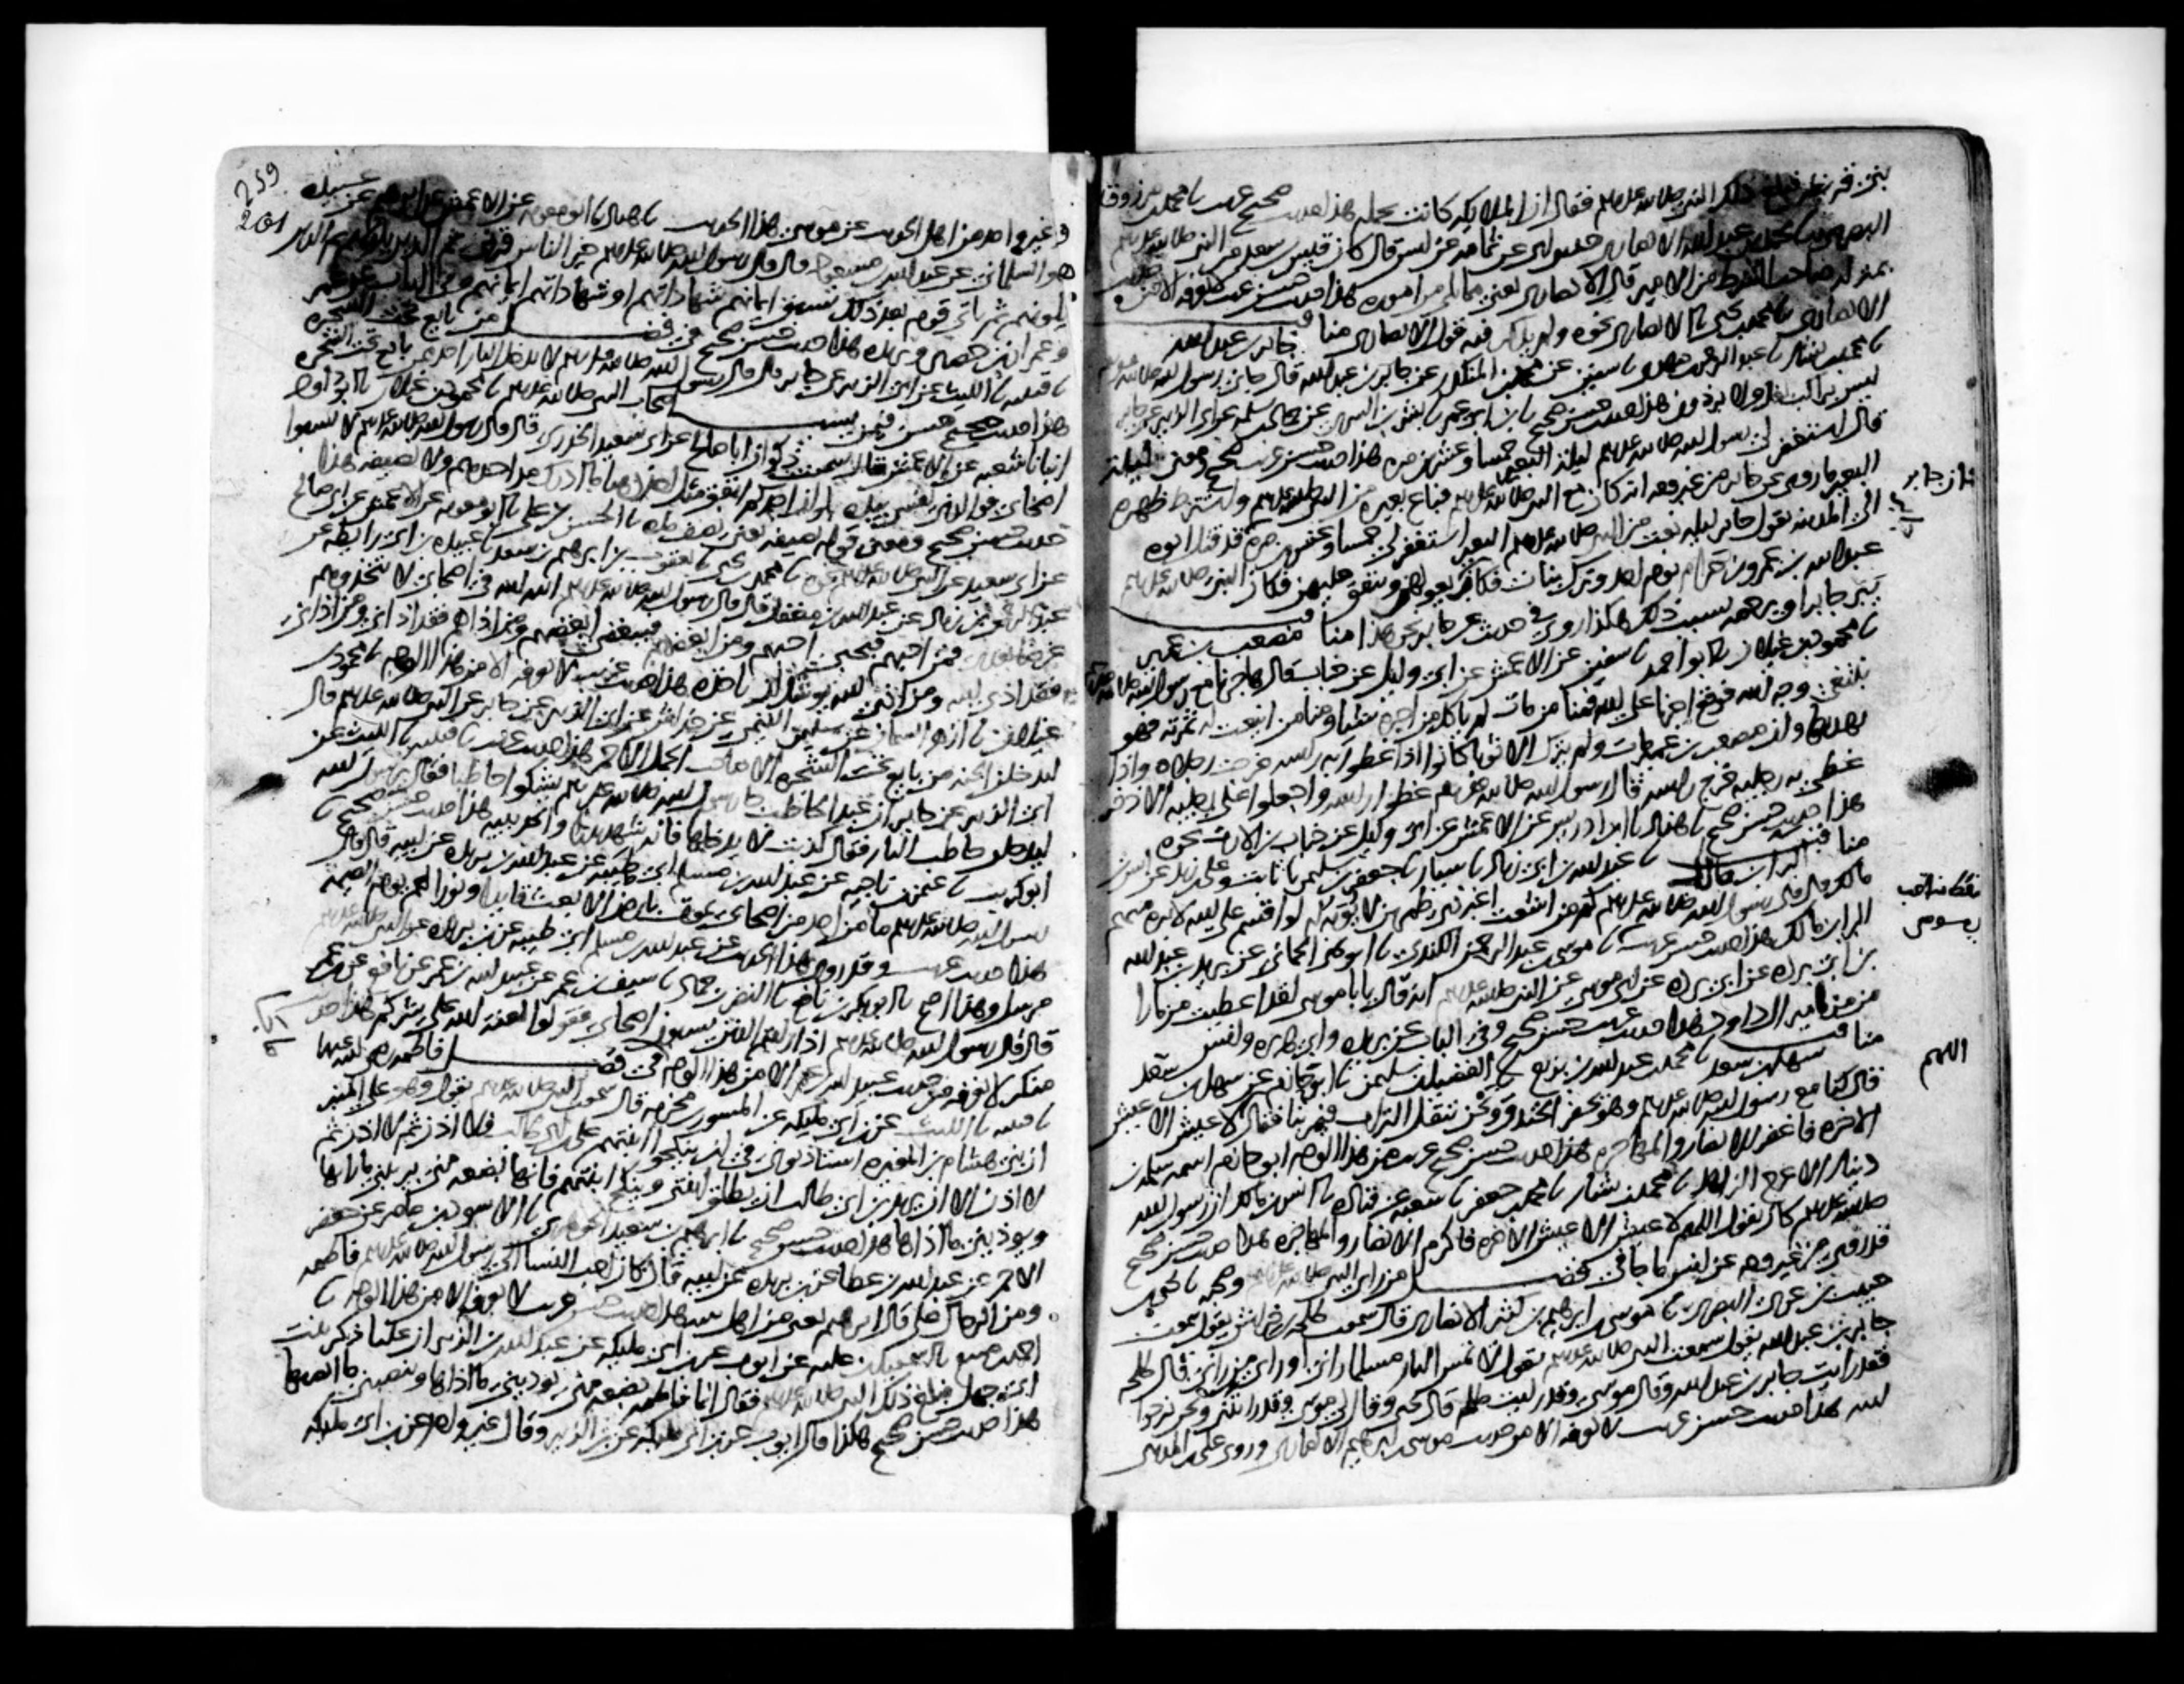 بني قريظة فبلغ ذلك النبي صلى الله عليه وسلم فقال ان الملائكة كانت تحمله هذا حديث صحيح غريب نا محمد بن مرزوق
البصري نا محمد بن عبد الله الانصاري حدثني ابي عن ثمامة عن انس قال كان قيس بن سعد من النبي صلى الله عليه وسلم
بمنزلة صاحب الشرط من الامير قال الانصاري يعني مما يلي من اموره هذا حديث حسن غريب لا نعرفه الا من حديث
الانصاري نا محمد بن يحيى نا الانصاري نحوه ولم يذكر فيه قول الانصاري مناقب جابر بن عبد الله
نا محمد بن بشار نا عبد الرحمن بن مهدي نا سفين عن محمد بن المنكدر عن جابر بن عبد الله قال جاني رسول الله صلى الله عليه وسلم
ليس براكب بغل ولا برذون هذا حديث حسن صحيح نا ابن ابي عمر نا بشر بن السري عن حماد بن سلمة عن ابي الزبير عن جابر
قال استغفر لي رسول الله صلى الله عليه وسلم ليلة البعير خمسا وعشرين مرة هذا حديث حسن غريب صحيح ومعنى ليلة
البعير ما روي عن جابر من غير وجه انه كان مع النبي صلى الله عليه وسلم فباع بعيره من النبي صلى الله عليه وسلم واشترط ظهره
الى المدينة يقول جابر ليلة بعت من النبي صلى الله عليه وسلم البعير استغفر لي خمسا وعشرين مرة قد قتل ابوه
عبد الله بن عمرو بن حرام يوم احد وترك بنات فكان جابر يعولهن وينفق عليهن فكان النبي صلى الله عليه وسلم
يبر جابرا ويرحمه بسبب ذلك هكذا روي في حديث عن جابر نحو هذا مناقب مصعب بن عمير
نا محمود بن غيلان نا ابو احمد نا سفين عن الاعمش عن ابي وايل عن خباب قال هاجرنا مع رسول الله صلى الله عليه وسلم
نبتغي وجه الله فوقع اجرنا على الله فمنا من مات لم ياكل من اجره شيئا ومنا من اينعت له ثمرته فهو
يهدبها وان مصعب بن عمير مات ولم يترك الا ثوبا كانوا اذا غطوا به راسه خرجت رجلاه واذا
غطي به رجليه خرج راسه فقال رسول الله صلى الله عليه وسلم غطوا راسه واجعلوا على رجليه الاذخر
هذا حديث حسن صحيح نا هناد نا ابن ادريس عن الاعمش عن ابي وايل عن خباب بن الارت نحوه
مناقب البرا بن مالك نا عبد الله بن ابي زياد نا سيار نا جعفر بن سليمن نا ثابت وعلي بن زيد عن انس بن
مالك قال قال رسول الله صلى الله عليه وسلم كم من اشعث اغبر ذي طمرين لا يؤبه له لو اقسم على الله لابره منهم
البرا بن مالك هذا حديث حسن غريب نا موسى بن عبد الرحمن الكندي نا ابو يحيى الحماني عن بريد بن عبد الله
بن ابي بردة عن ابي بردة عن ابي موسى عن النبي صلى الله عليه وسلم انه قال يا با موسى لقد اعطيت مزمارا
من مزامير ال داود هذا حديث غريب حسن صحيح وفي الباب عن بريدة وابي هريرة وانس
مناقب سهل بن سعد نا محمد بن عبد الله بن بزيع نا الفضيل بن سليمن نا ابو حازم عن سهل بن سعد
قال كنا مع رسول الله صلى الله عليه وسلم وهو يحفر الخندق ونحن ننقل التراب فيمر بنا فقال لا عيش الا عيش
الاخرة فاغفر للانصار والمهاجرة هذا حديث حسن صحيح غريب من هذا الوجه ابو حازم اسمه سلمة بن
دينار الاعرج الزاهد نا محمد بن بشار نا محمد بن جعفر نا شعبة عن قتادة نا انس بن مالك ان رسول الله
صلى الله عليه وسلم كان يقول اللهم لا عيش الا عيش الاخرة فاكرم الانصار والمهاجرة هذا حديث حسن صحيح
قد روي من غير وجه عن انس ما جا في فضل من راى النبي صلى الله عليه وسلم وصحبه نا يحيى بن
حبيب بن عربي البصري نا موسى بن ابرهيم بن كثير الانصاري قال سمعت طلحة بن خراش يقول سمعت
جابر بن عبد الله يقول سمعت النبي صلى الله عليه وسلم يقول لا تمس النار مسلما راني او راى من راني قال طلحة
فقد رايت جابر بن عبد الله وقال موسى وقد رايت طلحة قال يحيى وقال لي موسى وقد رايتني ونحن نرجوا
الله هذا حديث حسن غريب لا نعرفه الا من حديث موسى بن ابرهيم الانصاري وروى علي بن المديني
اللهم
259
201
وغير واحد من اهل الحديث عن موسى هذا الحديث نا هناد نا ابو معوية عن الاعمش عن ابرهيم عن عبيدة
هو السلماني عن عبد الله بن مسعود قال قال رسول الله صلى الله عليه وسلم خير الناس قرني ثم الذين يلونهم ثم الذين
يلونهم ثم ياتي قوم بعد ذلك تسبق ايمانهم شهاداتهم او شهاداتهم ايمانهم وفي الباب عن عمر
وعمران بن حصين وبريدة هذا حديث حسن صحيح في فضل من بايع تحت الشجرة
نا قتيبة نا الليث عن ابي الزبير عن جابر قال قال رسول الله صلى الله عليه وسلم لا يدخل النار احد ممن بايع تحت الشجرة
هذا حديث حسن صحيح فيمن سب اصحاب النبي صلى الله عليه وسلم نا محمود بن غيلان نا ابو داود
انبانا شعبة عن الاعمش قال سمعت ذكوان ابا صالح عن ابي سعيد الخدري قال قال رسول الله صلى الله عليه وسلم لا تسبوا
اصحابي فوالذي نفسي بيده لو ان احدكم انفق مثل احد ذهبا ما ادرك مد احدهم ولا نصيفه هذا
حديث حسن صحيح ومعنى قوله نصيفه يعني نصف مده نا الحسن بن علي نا ابو معوية عن الاعمش عن ابي صالح
عن ابي سعيد عن النبي صلى الله عليه وسلم نحوه نا محمد بن يحيى نا يعقوب بن ابرهيم بن سعد نا عبيدة بن ابي رايطة عن
عبد الرحمن بن زياد عن عبد الله بن مغفل قال قال رسول الله صلى الله عليه وسلم الله الله في اصحابي لا تتخذوهم
غرضا بعدي فمن احبهم فبحبي احبهم ومن ابغضهم فببغضي ابغضهم ومن اذاهم فقد اذاني ومن اذاني
فقد اذى الله ومن اذى الله يوشك ان ياخذه هذا حديث غريب لا نعرفه الا من هذا الوجه نا محمود بن
غيلان نا ازهر السمان عن سليمن التيمي عن خداش عن ابي الزبير عن جابر عن النبي صلى الله عليه وسلم قال
ليدخلن الجنة من بايع تحت الشجرة الا صاحب الجمل الاحمر هذا حديث غريب نا قتيبة نا الليث عن
ابي الزبير عن جابر ان عبدا لحاطب جا رسول الله صلى الله عليه وسلم يشكوا حاطبا فقال يا رسول الله
ليدخلن حاطب النار فقال كذبت لا يدخلها فانه شهد بدرا والحديبية هذا حديث حسن صحيح نا
ابو كريب نا عثمن بن ناجية عن عبد الله بن مسلم ابي طيبة عن عبد الله بن بريدة عن ابيه قال قال
رسول الله صلى الله عليه وسلم ما من احد من اصحابي يموت بارض الا بعث قايدا ونورا لهم يوم القيمة
هذا حديث غريب وقد روي هذا الحديث عن عبد الله بن مسلم ابي طيبة عن ابن بريدة عن النبي صلى الله عليه وسلم
مرسل وهذا اصح نا ابو بكر بن نافع نا النضر بن حماد نا سيف بن عمر عن عبيد الله بن عمر عن نافع عن ابن عمر
قال قال رسول الله صلى الله عليه وسلم اذا رايتم الذين يسبون اصحابي فقولوا لعنة الله على شركم هذا حديث
منكر لا نعرفه من حديث عبيد الله بن عمر الا من هذا الوجه في فضل فاطمة رضي الله عنها
نا قتيبة نا الليث عن ابن ابي مليكة عن المسور بن مخرمة قال سمعت النبي صلى الله عليه وسلم يقول وهو على المنبر
ان بني هشام بن المغيرة استاذنوني في ان ينكحوا ابنتهم علي بن ابي طالب فلا اذن ثم لا اذن ثم
لا اذن الا ان يريد ابن ابي طالب ان يطلق ابنتي وينكح ابنتهم فانها بضعة مني يريبني ما رابها
ويوذيني ما اذاها هذا حديث حسن صحيح نا ابرهيم بن سعيد الجوهري نا الاسود بن عامر عن جعفر
الاحمر عن عبد الله بن عطا عن ابن بريدة عن ابيه قال كان احب النسا الى رسول الله صلى الله عليه وسلم فاطمة
ومن الرجال علي قال ابرهيم يعني من اهل بيته هذا حديث حسن غريب لا نعرفه الا من هذا الوجه نا
احمد بن منيع نا اسمعيل بن علية عن ايوب عن ابن ابي مليكة عن عبد الله بن الزبير ان عليا ذكر بنت
ابي جهل فبلغ ذلك النبي صلى الله عليه وسلم فقال انما فاطمة بضعة مني يوذيني ما اذاها وينصبني ما انصبها
هذا حديث حسن صحيح هكذا قال ايوب عن ابن ابي مليكة عن ابن الزبير وقال غير واحد عن ابن ابي مليكة